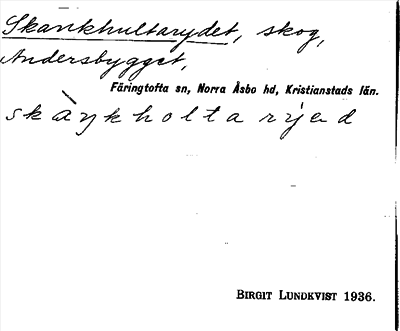 Skankhultarydet, skog,
Andersbygget,
Färingtofta sn, Norra Åsbo hd, Kristianstads län.
skàŋkholtaryed
BIRGIT LUNDKVIST 1936.